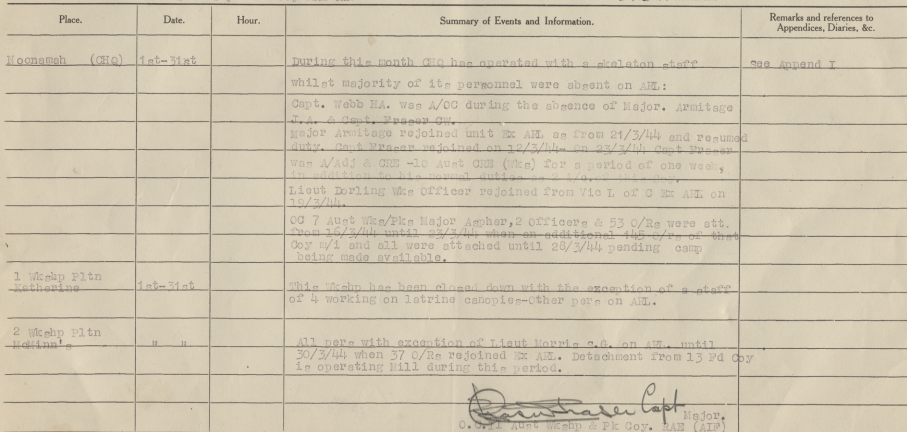 Place. Date. Hour. Summary of Events and Information. Remarks and references to
Appendices, Diaries, &c.
Noonamah (CHQ) 1st-31st During this month CHQ has operated with a skelaton staff see Append I
whilst majority of its personnel were absent on AHL:
Capt. Webb HA. was A/OC during the absence of Major. Armitage
J.A. & Capt. Fraser CW.
Major Armitage rejoined unit Ex AHL as from 21/3/44 and resumed
duty. Capt Fraser rejoined on 12/3/44- on 23/3/44 Capt Fraser
was A/Adj & CRE -10 Aust CRE (Wks) for a period of one week,
in addition to his normal duties as 2 i/c, of this Coy.
Lieut Dorling Wks Officer rejoined from Vic L of C Ex AHL on
19/3/44.
OC 7 Aust Wks/Pks Major Aspher,2 Officers & 53 O/Rs were att.
from 16/3/44 until 23/3/44 when an additional 145 O/Rs of that
Coy m/i and all were attached until 28/3/44 pending camp
being made available.
1 Wkshp Pltn
Katherine 1st-31st This Wkshp has been closed down with the exception of a staff
of 4 working on latrine canopies-Other pers on AHL.
2 Wkshp Pltn
McMinn's " " All pers with exception of Lieut Morris s.G. on AHL. until
30/3/44 when 37 O/Rs rejoined Ex AHL. Detachment from 13 Fd Coy
is operating Mill during this period.
Fraser Capt
Major.
O.C.11 Aust Wkshp & Pk Coy. RAE (AIF)